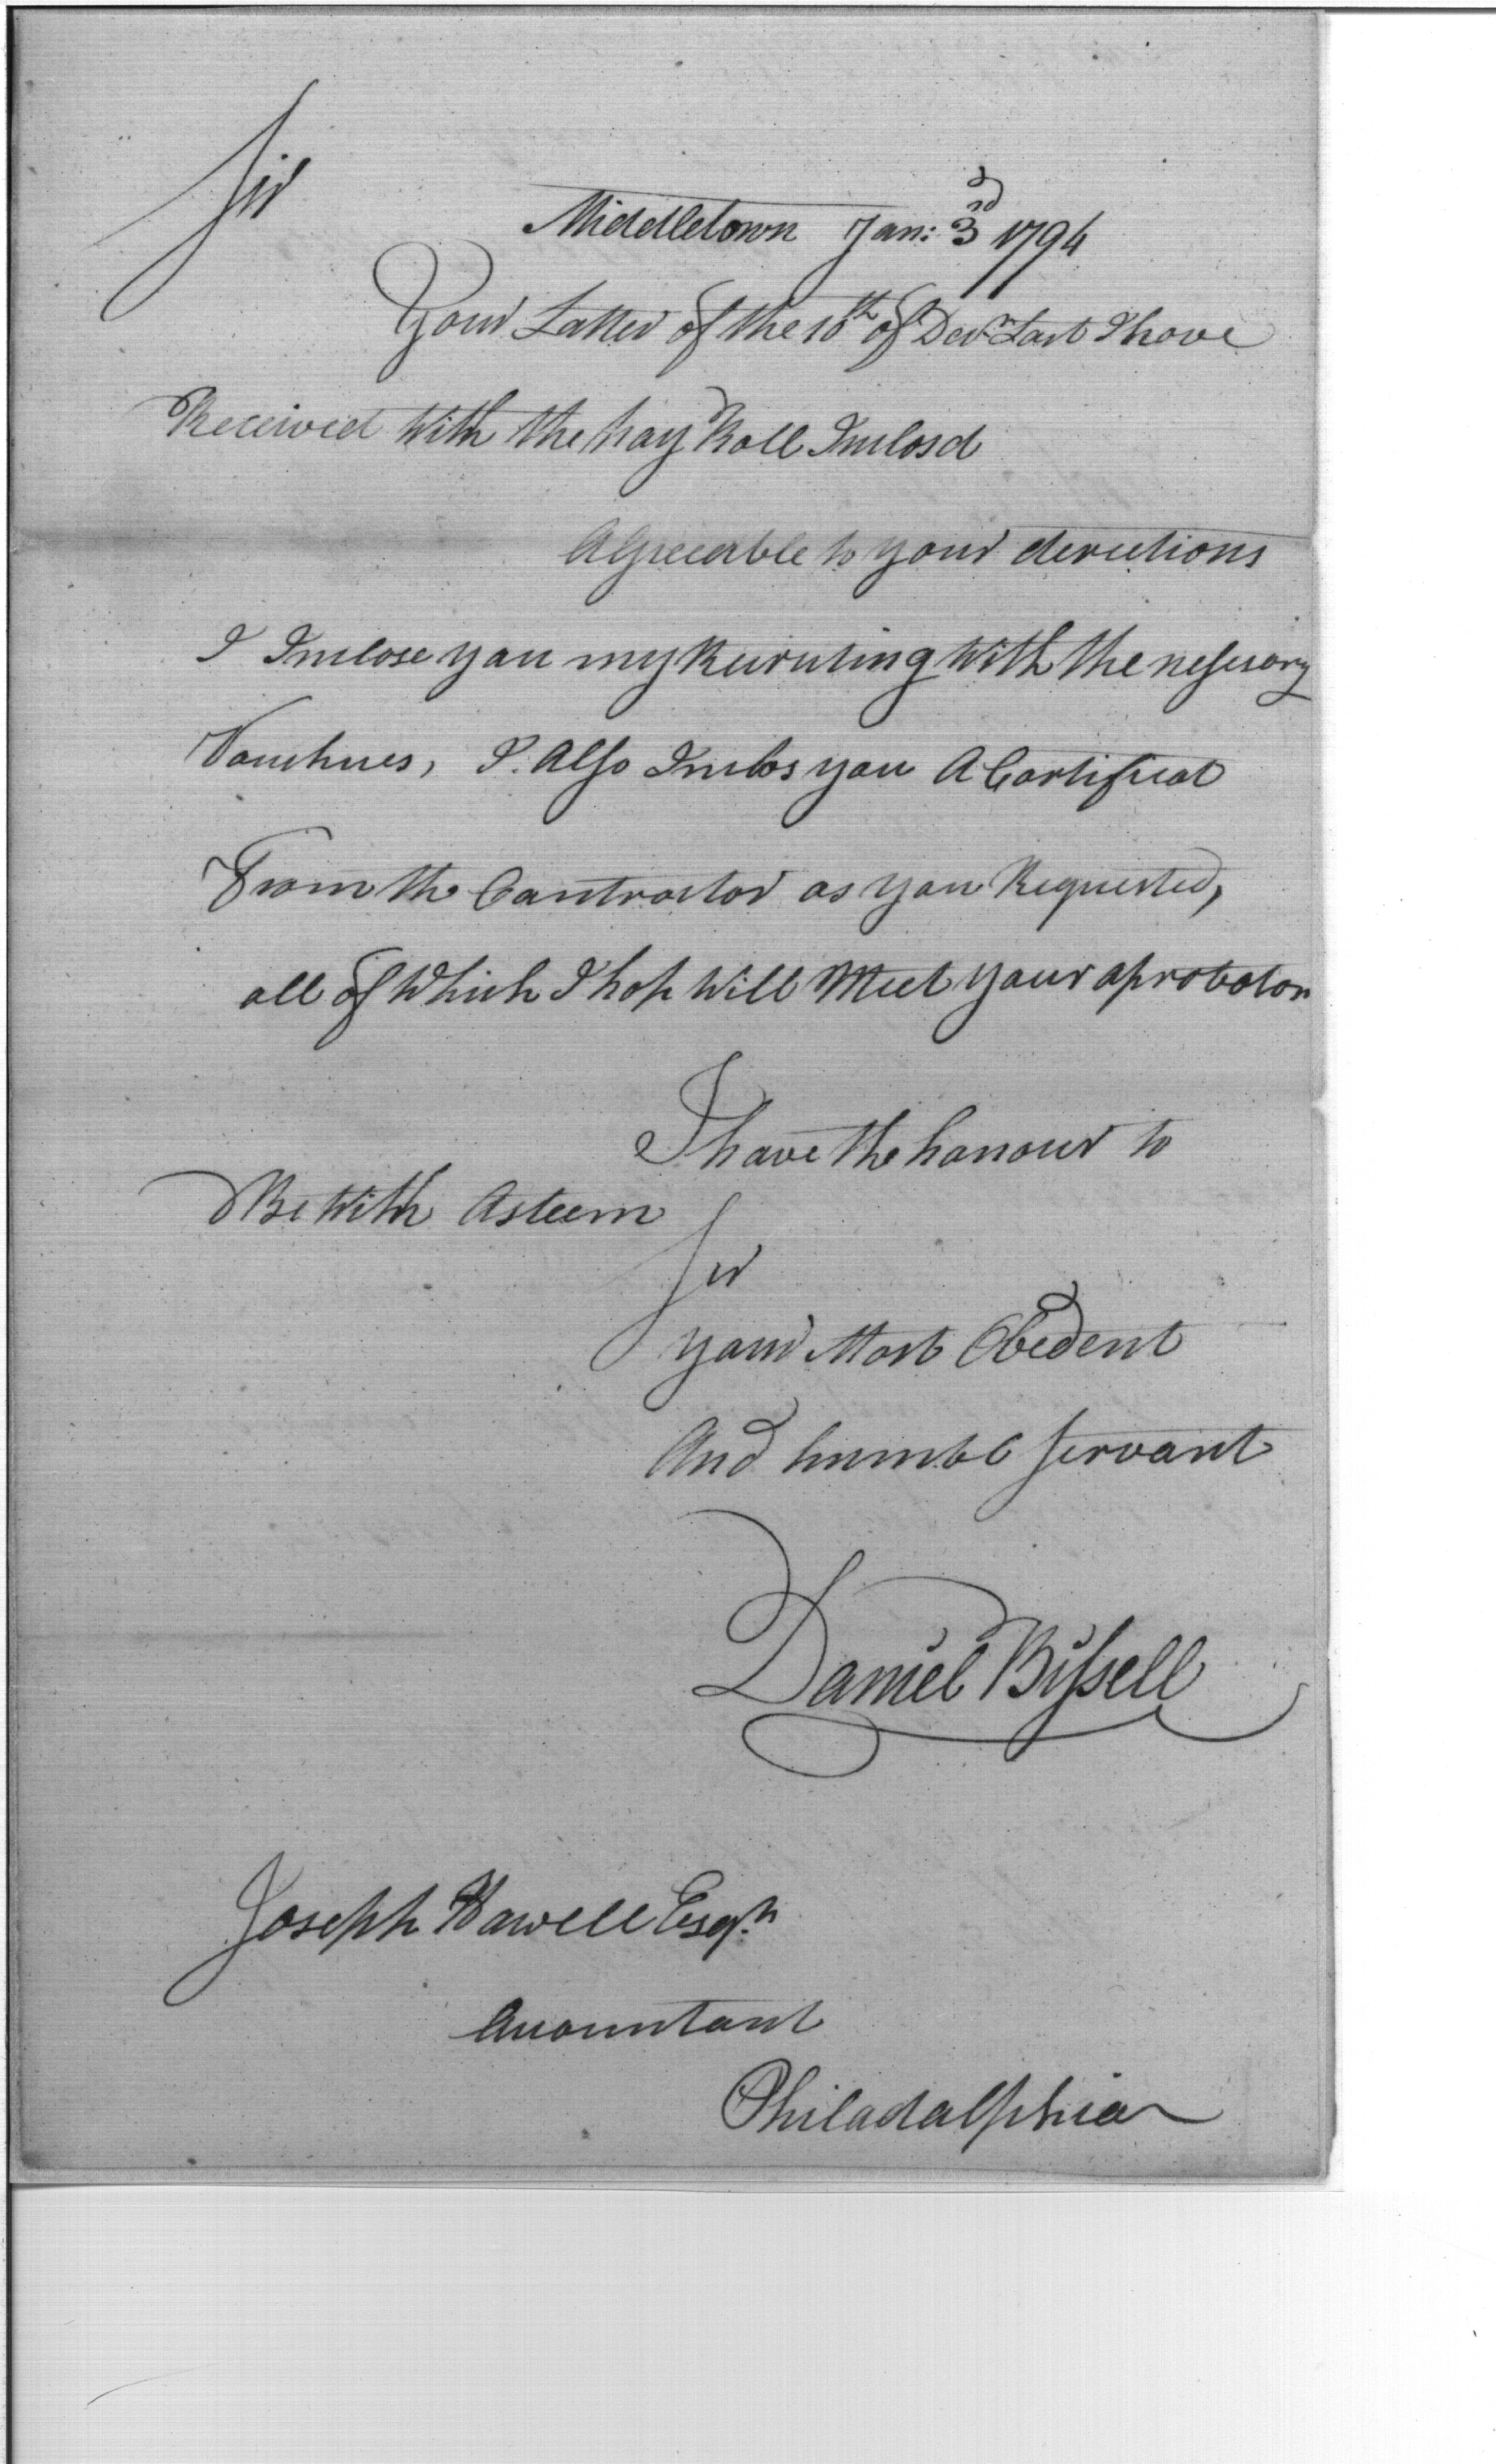 Sir
Middletown Jan: 3rd 1794
Your Latter of the 10th of Decr Last I have
Received With the pay Roll Inclosd
Agreeable to your derections
I Inclose you my Recruting With the nessesary
Vouchues, I. Also Inclos you A Cartificat
From the Contractor as you Requested,
all of Which I hop Will Meet your aprobaton
I have the honour to
Be With Asteem
Sir
your Most Obedent
And humble servant
Daniel Bissell
Joseph Howell Esqr.
Accountant
Philadalphia